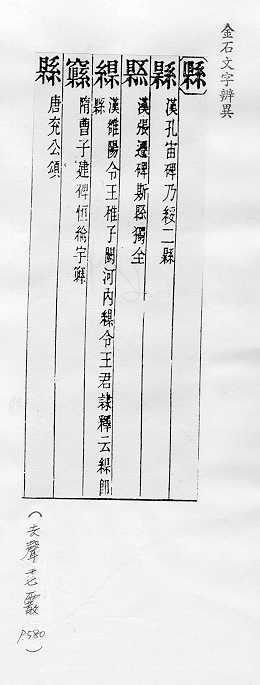 金石文字辨異
縣
縣 漢孔宙碑乃綏二縣
漢張遷碑斯縣獨全
漢雒陽令王稚子闕河內縣令王君隸釋云 即縣
隋曹子建碑恒 宇縣
縣 唐兖公頌
(去聲 霰 P.580)